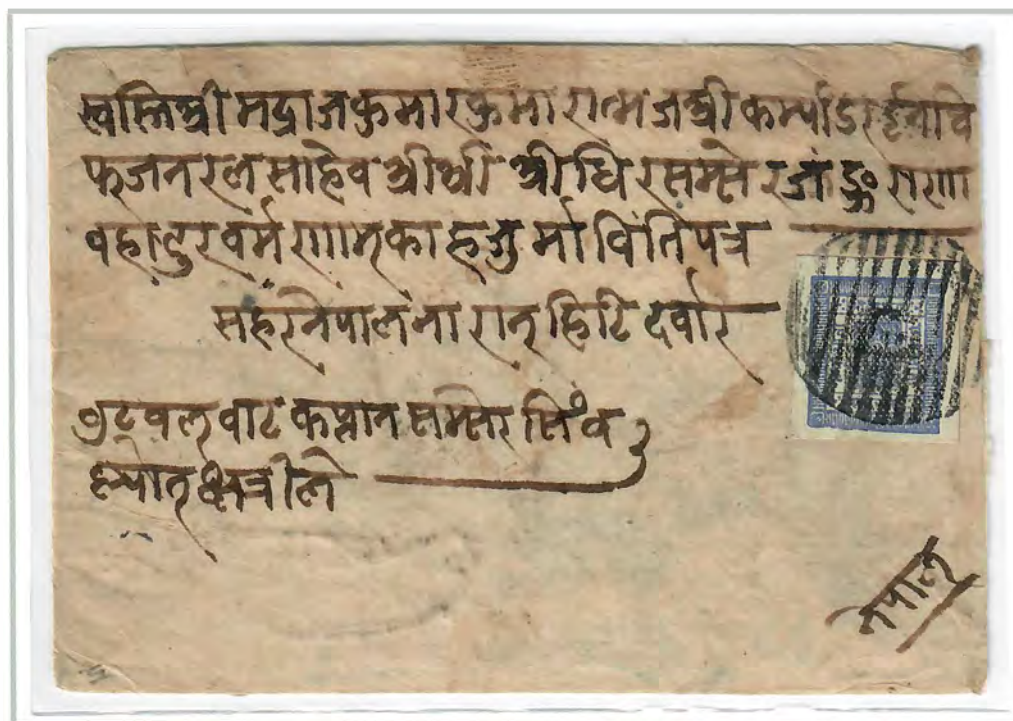 स्वस्तिश्रीमद्राजकुमारकुमारात्मजश्रीकम्याडरईनचि
फ्जनरलसाहेवश्रीश्री श्रीधिरसम्सेरजंङ्गराणा
वहादुरवर्मणाम्का हजुर्मा विंतिपत्र
सहरनेपालना रान्हिटि दर्वार
वुटवल्वाट कप्तान सम्सेर सिंव
क्षत्रीले
नेपाल्